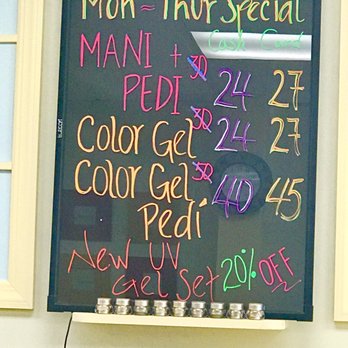 Mon - Thur Special
Cash Card
MANI + 30 24 27
PEDI
Color Gel 30 24 27
Color Gel 50 40 45
Pedi
New UV 20% OFF
Gel Set